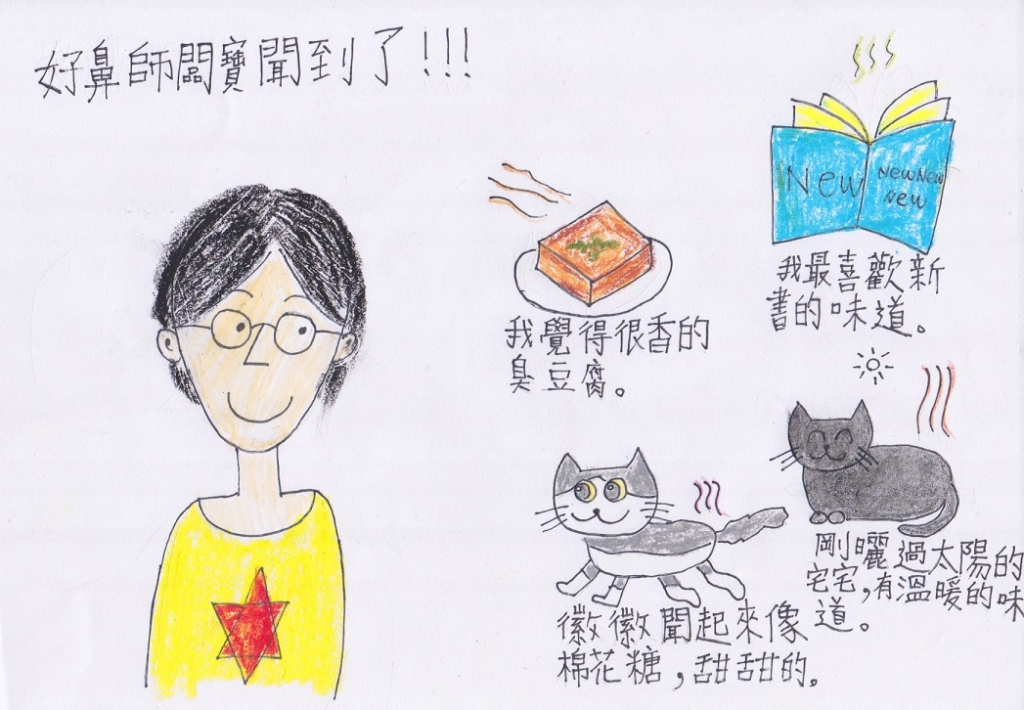 好鼻師闆寶聞到了!!!
New
New New
New
我最喜歡新
書的味道。
我覺得很香的
臭豆腐。
剛曬過太陽的
宅宅,有溫暖的味
道。
徽徽聞起來像
棉花糖,甜甜的。